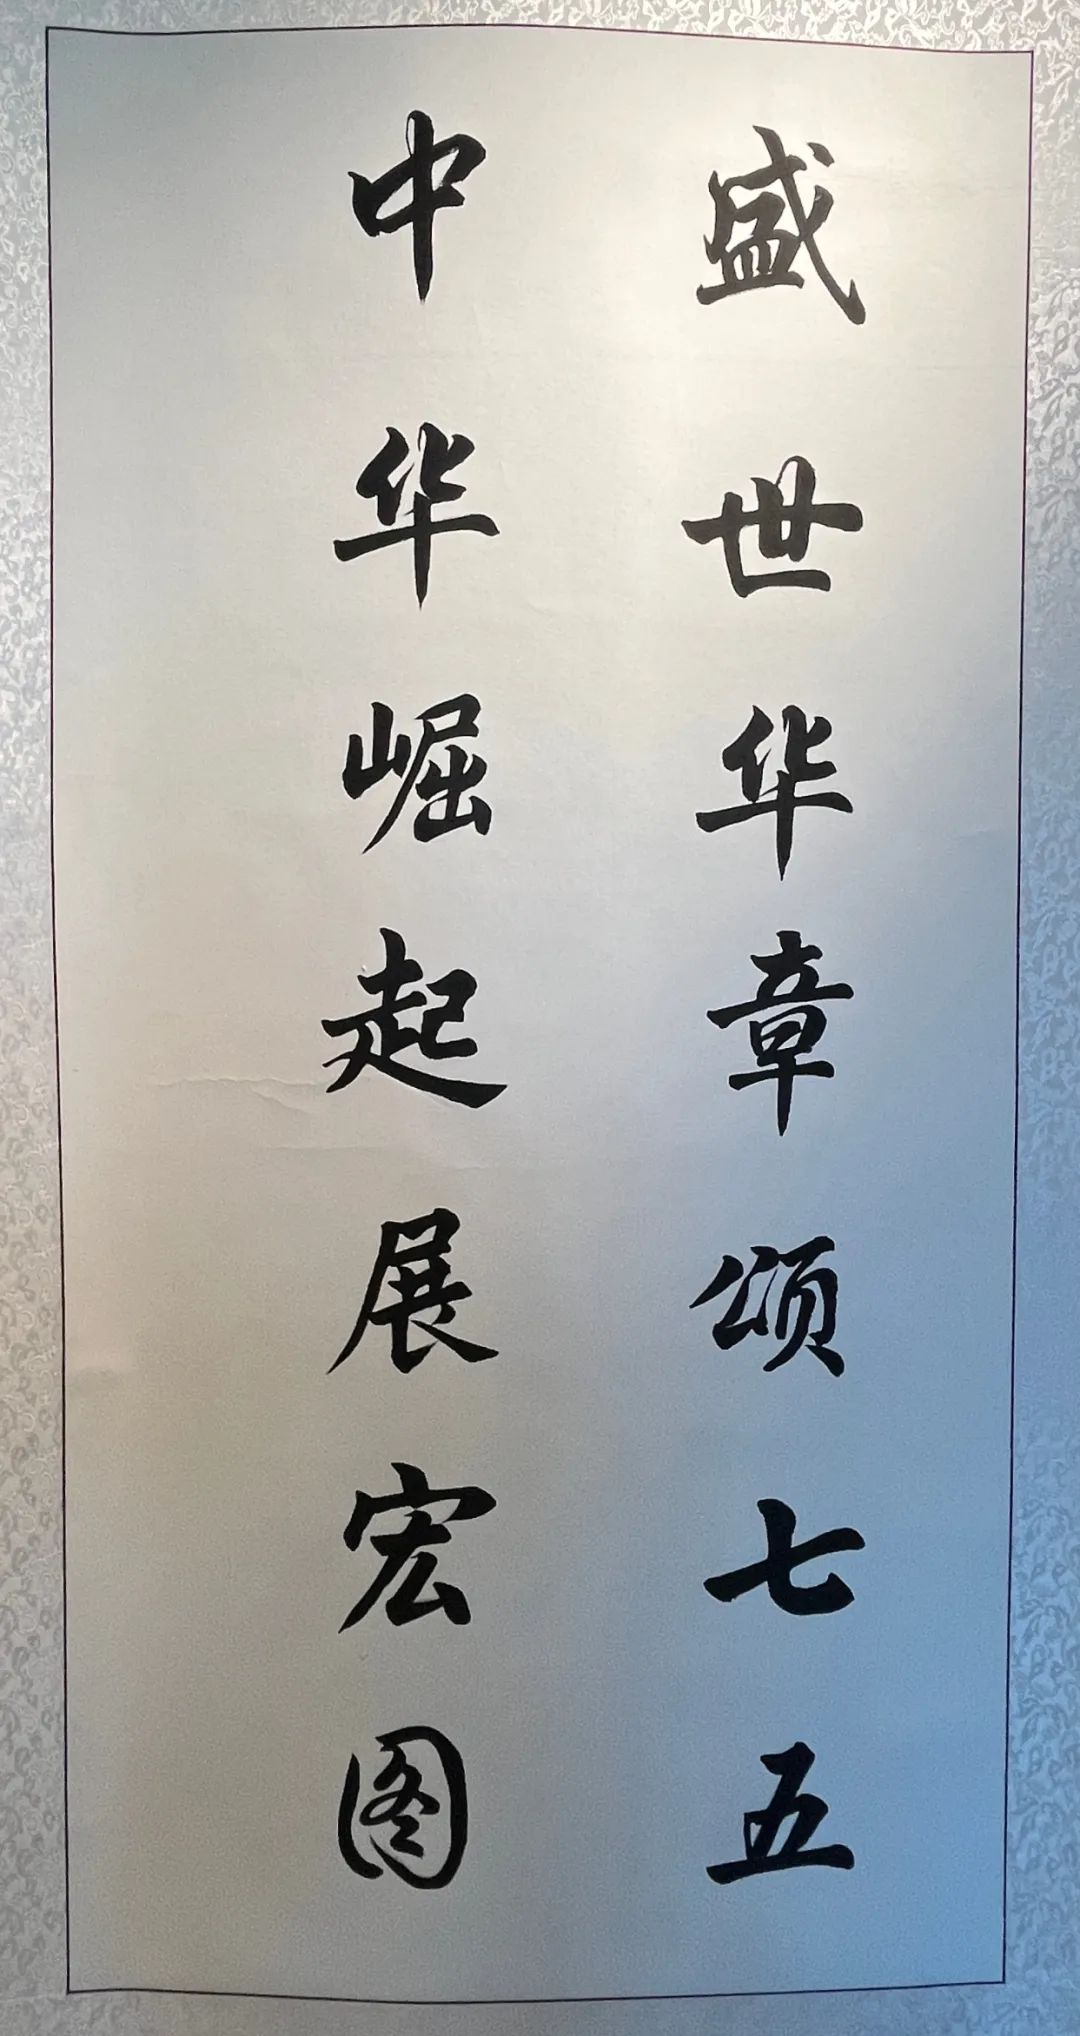 盛世华章颂七五
中华崛起展宏图